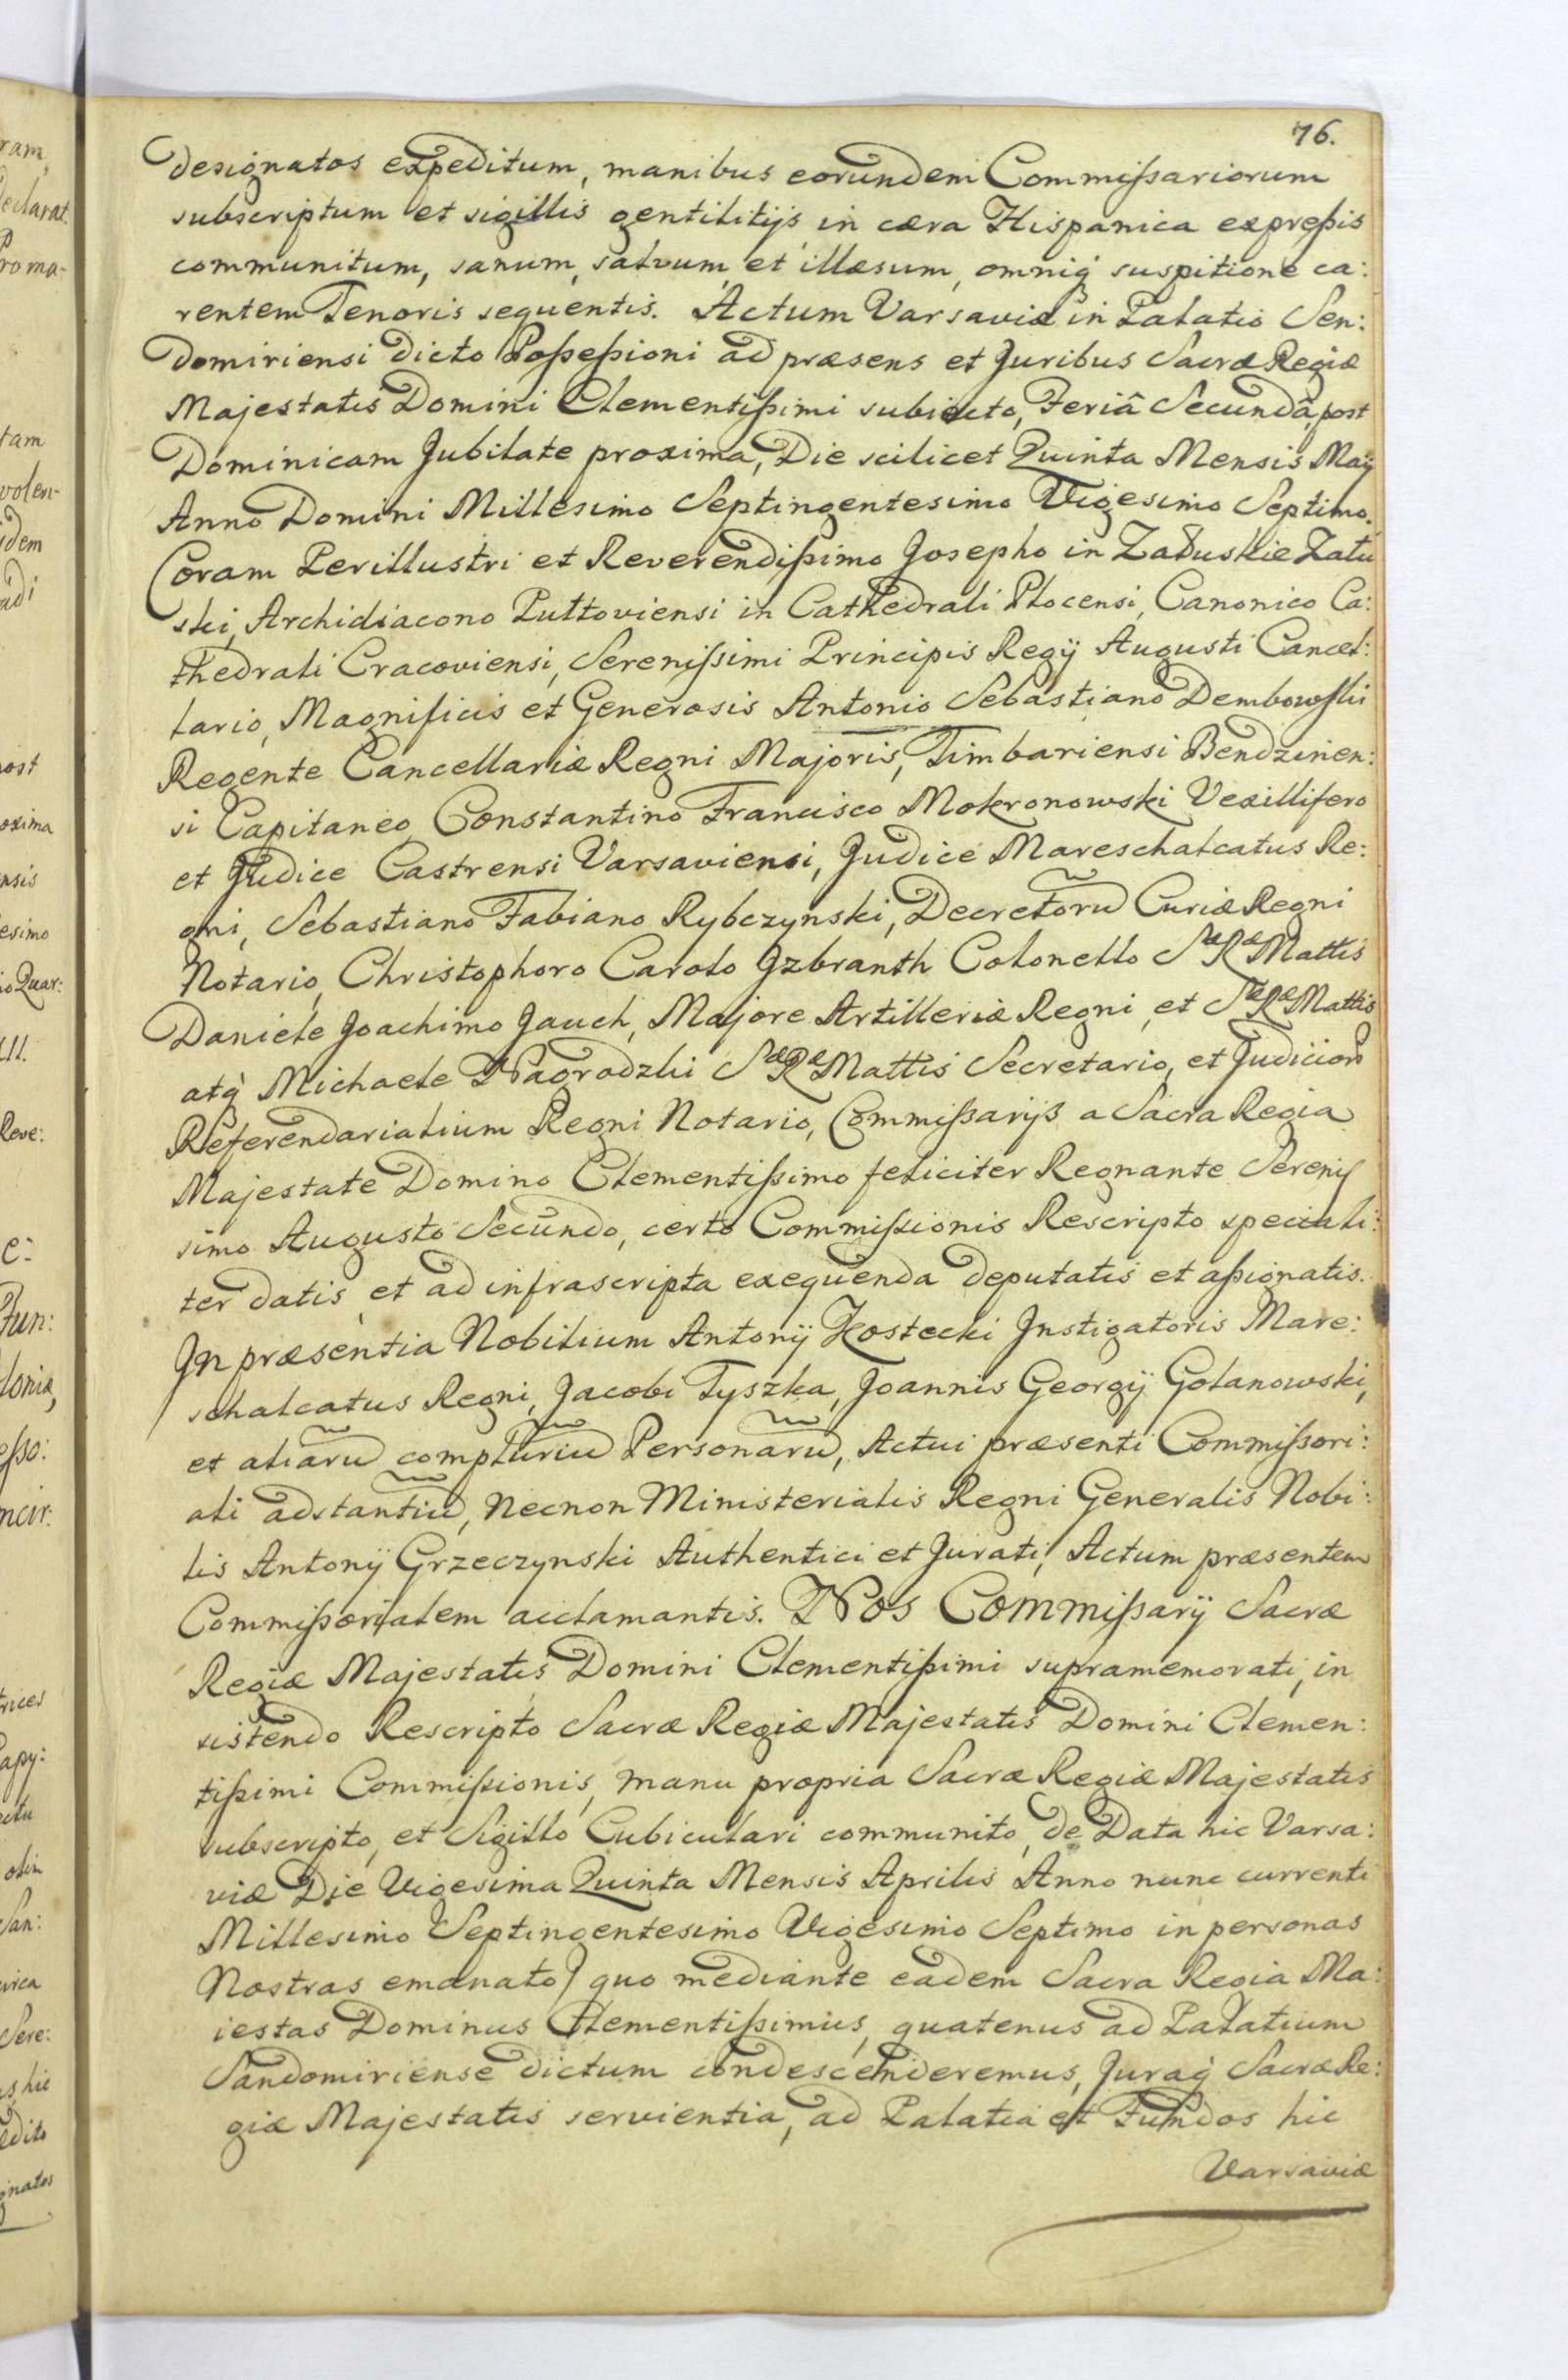 76.
designatos expeditum, manibus eorundem Commißariorum
subscriptum et sigillis gentilitijs in cæra Hispanica expreßis
communitum, sanum, salvum, et illæsum, omniq́ suspitione ca:
rentem Tenoris sequentis. Actum Varsaviæ in Palatio Sen:
domiriensi dicto Poßeßioni ad præsens et Juribus Sacræ Regiæ
Majestatis Domini Clementißimi subiecto, Feriâ Secundâ, post
Dominicam Jubilate proxima, Die scilicet Quinta Mensis Maÿ
Anno Domini Millesimo Septingentesimo Vigesimo Septimo.
Coram Perillustri et Reverendißimo Josepho in Załuskie Zału
ski, Archidiacono Pułtoviensi in Cathedrali Plocensi, Canonico Ca:
thedrali Cracoviensi, Sereniſsimi Principis Regÿ Augusti Cancel:
lario, Magnificis et Generosis Antonio Sebastiano Dembowſki
Regente Cancellariæ Regni Majoris, Timbariensi Bendzinen:
si Capitaneo, Constantino Francisco Mokronowski Vexillifero
et Judice Castrensi Varsaviensi, Judice Mareschalcatus Re:
gni, Sebastiano Fabiano Rybczynski, Decretorũ Curiæ Regni
Notario, Christophoro Carolo Jzbranth Colonello Sæ Ræ Mattis
Daniele Joachimo Jauch, Majore Artilleriæ Regni, et Sæ Ræ Mattis
atq́ Michaele Nagrodzki Sæ Ræ Mattis Secretario, et Judicioȓ
Referendarialium Regni Notario, Commißarijs a Sacra Regia
Majestate Domino Clementißimo feliciter Regnante Sereniſ
simo Augusto Secundo, certo Commißionis Rescripto speciali:
ter datis, et ad infrascripta exequenda deputatis et aßignatis.
Jn præsentia Nobilium Antonÿ Kostecki Jnstigatoris Mare:
schalcatus Regni, Jacobi Tyszka, Joannis Georgÿ Golanowski,
et aliarũ compluriũ Personarũ, Actui præsenti Commißori:
ali adstantiũ, Necnon Ministerialis Regni Generalis Nobi:
lis Antonÿ Grzeczynski Authentici et Jurati, Actum præsentem
Commißorialem acclamantis. Nos Commißarÿ Sacræ
Regiæ Majestatis Domini Clementißimi supramemorati, in
sistendo Rescripto Sacræ Regiæ Majestatis Domini Clemen:
tißimi Commißionis, manu propria Sacræ Regiæ Majestatis
subscripto, et Sigillo Cubiculari communito, de Data hic Varsa:
viæ Die Vigesima Quinta Mensis Aprilis Anno nunc currenti
Millesimo Septingentesimo Vigesimo Septimo in personas
Nostras emanato) quo mediante eadem Sacra Regia Ma:
iestas Dominus Clementißimus, quatenus ad Palatium
Sandomiriense dictum condescenderemus, Juraq́ Sacræ Re:
giæ Majestatis servientia, ad Palatia et Fundos hic
Varsaviæ